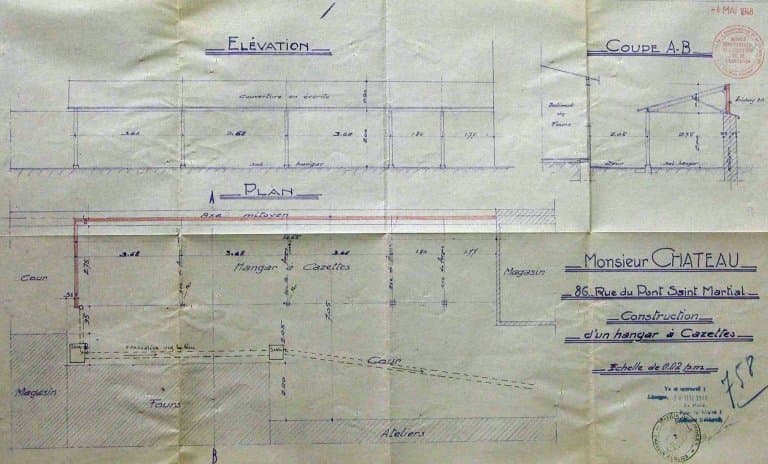 ELÉVATION
COUPE A-B
-6 MAI 1948
Couverture en éverite
3.60
3.60
3.60
1.80
1.75
2.00
sol
hangar
Batiment
des
Fours
2.05
2.75
Cour
sol hangar
PLAN
A
Axe mitoyen
3.60
3.60
3.60
1.80
1.75
Cour
2.75
Hangar à Cazettes
Magasin
7.05
2.05
Cour
2.00
Magasin
Fours
Ateliers
B
Monsieur CHATEAU
86. Rue du Pont Saint Martial
Construction
d'un hangar à Cazettes
Echelle de 0.02 p.m.
758
Vu et approuvé :
Limoges
Le Maire